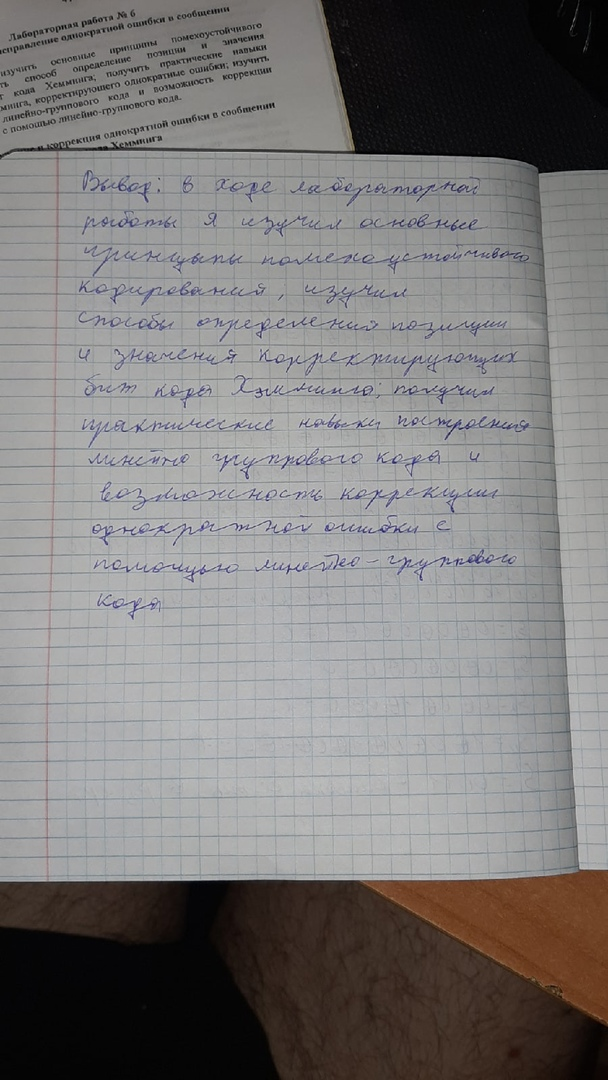 Лабораторная работа № 6
исправление однократной ошибки в сообщении
изучить основные принципы помехоустойчивого
способ определение позиции и значения
кода Хемминга, получить практические навыки
корректирующего однократные ошибки; изучить
линейно-группового кода и возможность коррекции
с помощью линейно-группового кода.
и коррекция однократной ошибки в сообщении
Хемминга
Вывод: в ходе лабораторной
работы я изучил основные
принципы помехоустойчивого
кодирования, изучил
способы определения позиции
и значений корректирующих
бит кода Хэмминга; получил
практические навыки построения
линейно группового кода и
возможность коррекции
однократной ошибки с
помощью линейно-группового
кода